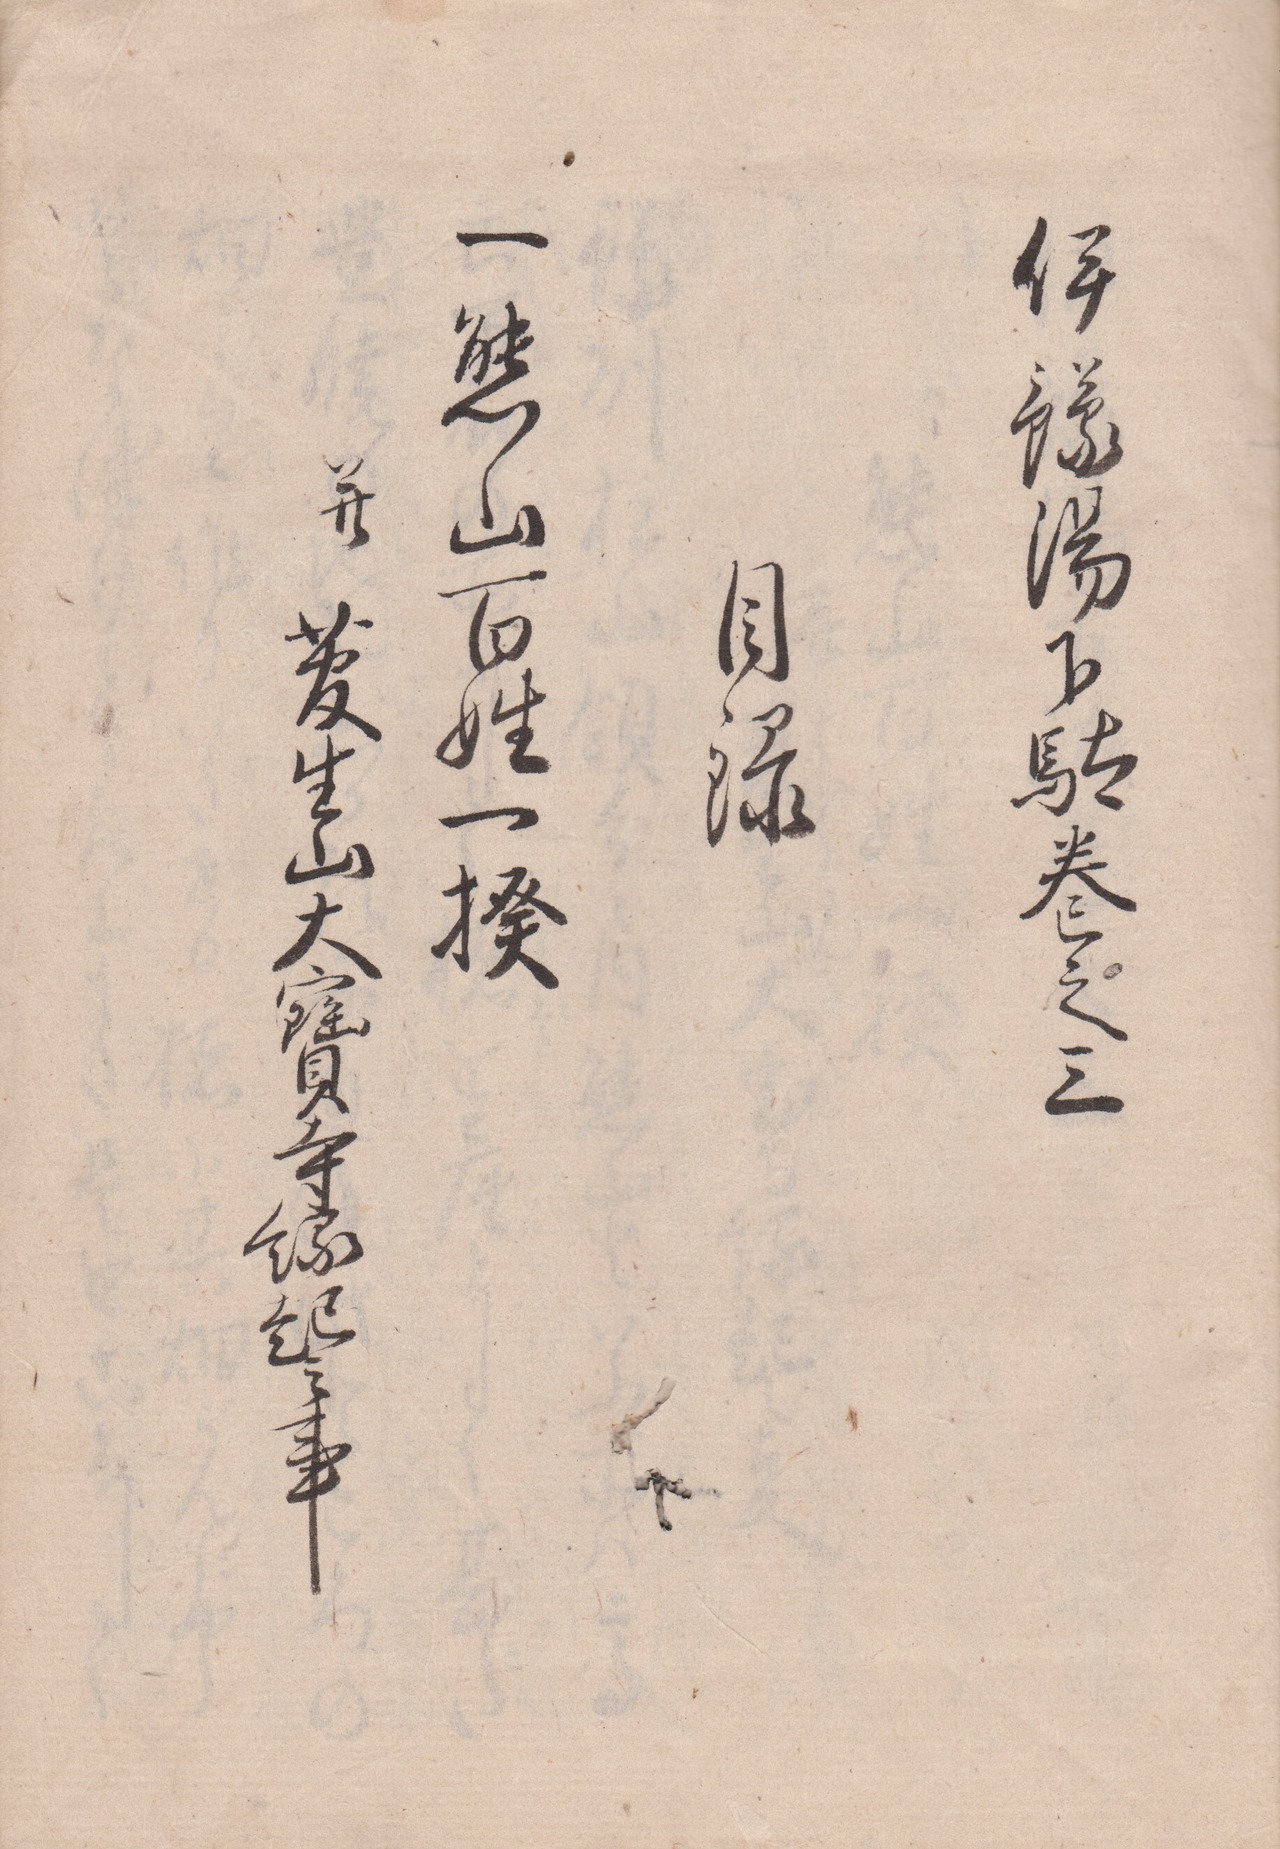 伊豫湯下駄巻之三
目録
一熊山百姓一揆
并菅生山大寳寺縁起之事